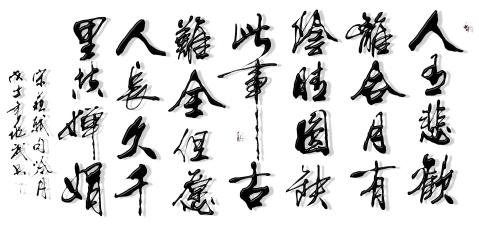 人有悲歡
離合月有
陰晴圓缺
此事古
難全但願
人長久千
里共嬋娟
宋蘇軾句